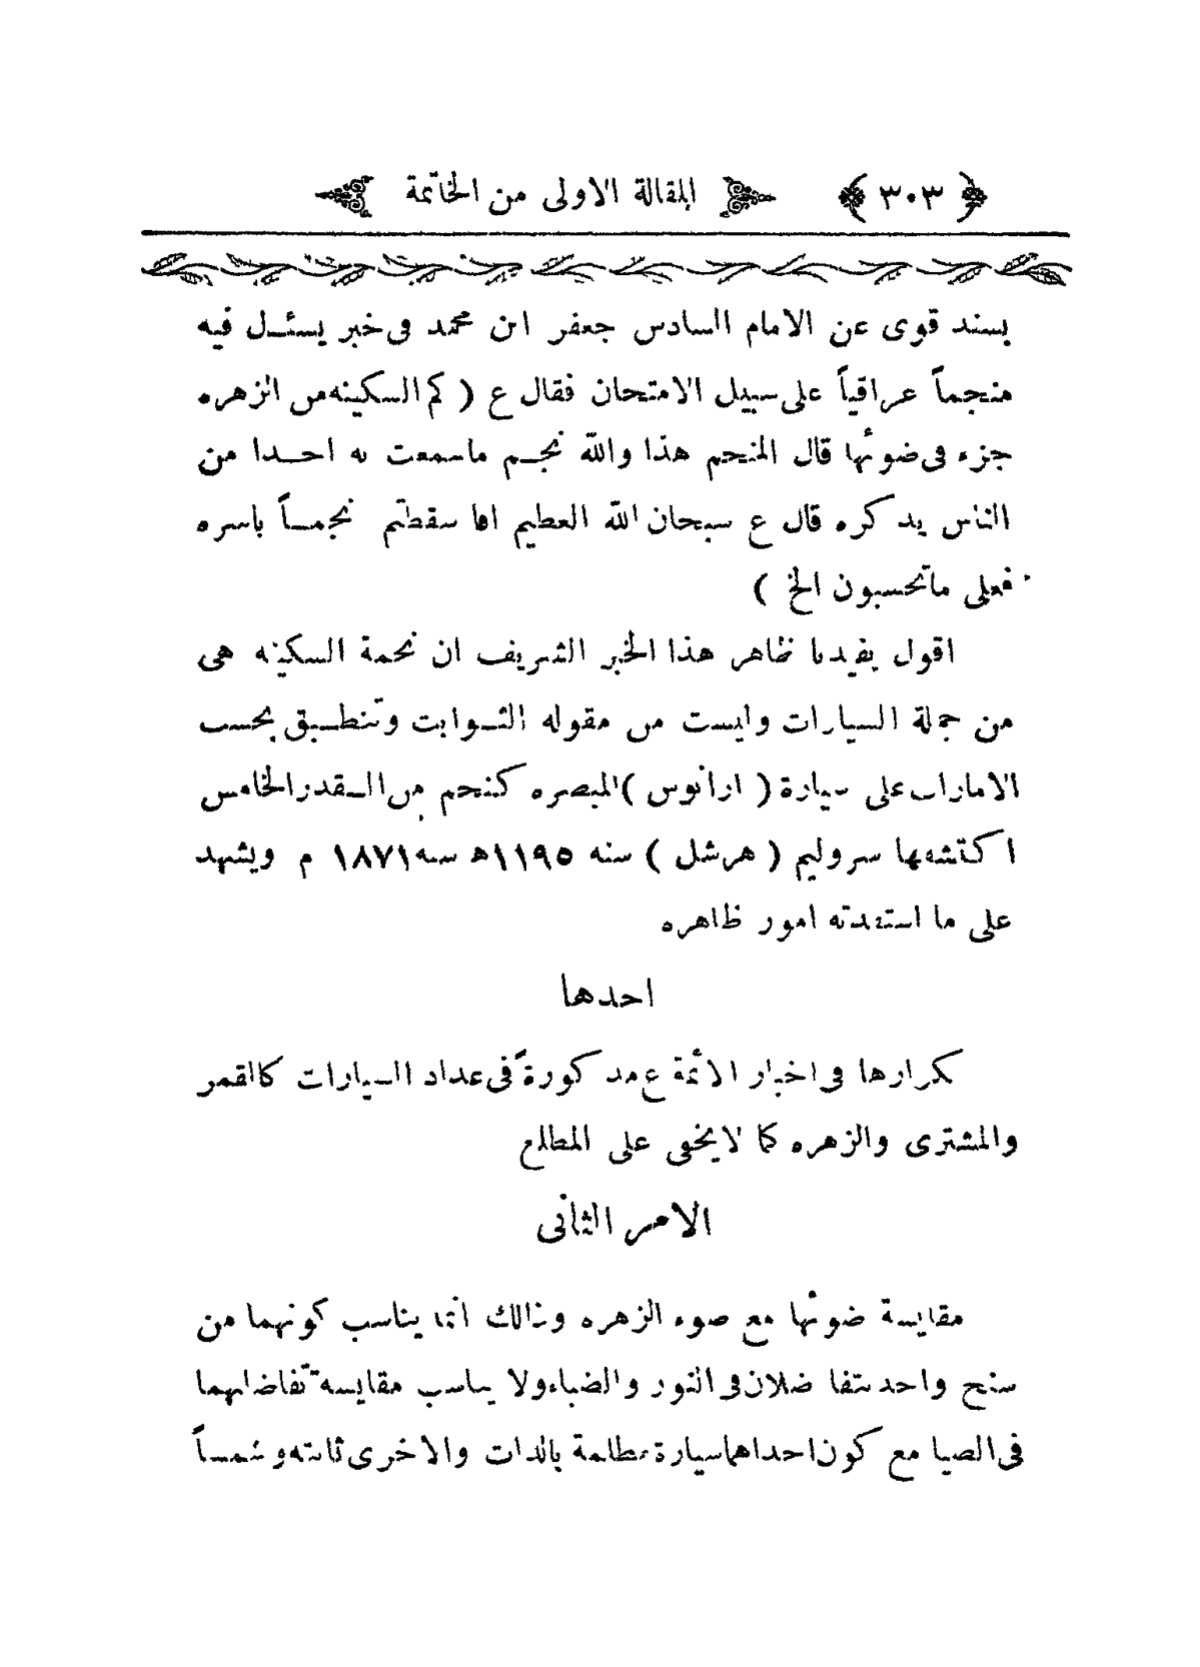 ﴿ ٣٠٣ ﴾ المقالة الاولى من الخاتمة
بسند قوى عن الامام السادس جعفر ابن محمد فى خبر يسئل فيه
منجماً عراقياً على سبيل الامتحان فقال ع ( كم السكينه من الزهره
جزء فى ضوئها قال المنجم هذا والله نجم ماسمعت به احدا من
الناس يذكره قال ع سبحان الله العظيم افا سقطتم نجماً باسره
فعلى ماتحسبون الخ )
اقول يفيدنا ظاهر هذا الخبر الشريف ان نجمة السكينه هى
من جملة السيارات وليست من مقوله الثوابت وتنطبق بحسب
الامارات على سيارة ( ارانوس ) المبصره كنجم من القدر الخامس
اكتشفها سر وليم ( هرشل ) سنه ١١٩٥ه سنه ١٨٧١ م ويشهد
على ما استفدته امور ظاهره
احدها
تكرارها فى اخبار الائمة ع مذكورةً فى عداد السيارات كالقمر
والمشترى والزهره كما لايخفى على المطلع
الامر الثانى
مقايسة ضوئها مع ضوء الزهره وذالك انما يناسب كونهما من
سنخ واحد يتفاضلان فى النور والضياء ولا يناسب مقايسه تفاضلهما
فى الضيا مع كون احداهما سيارة مظلمة بالذات والاخرى ثابته وشمساً